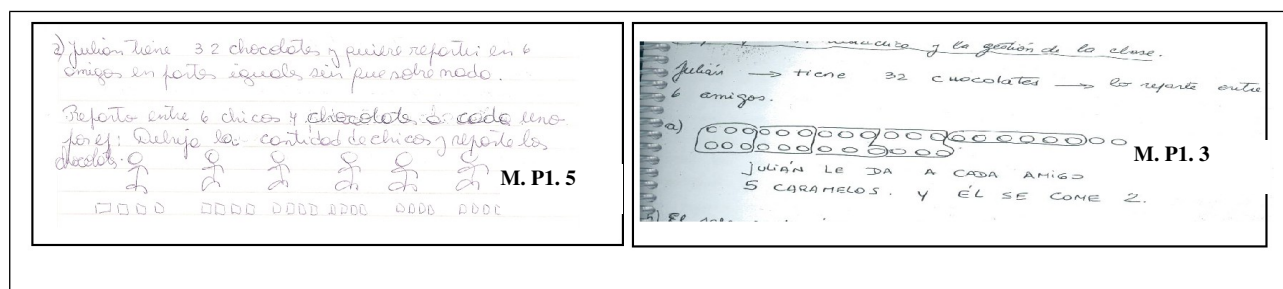 2) Julian tiene 32 chocolates y quiere repartir en 6
amigos en partes iguales sin que sobre nada.
Reparto entre 6 chicos 4 chocolates a cada uno
por ej: Dibuja la cantidad de chicos y reparte los
chocolates.
M. P1. 5
y la gestión de la clase.
Julián → tiene 32 chocolates → lo reparte entre
6 amigos.
a)
M. P1. 3
JULIÁN LE DA A CADA AMIGO
5 CARAMELOS. Y ÉL SE COME 2.